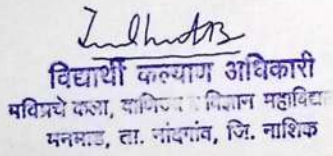 विद्यार्थी कल्याण अधिकारी
मविप्रचे कला, वाणिज्य विज्ञान महाविद्या
मनमाड, ता. नांदगांव, जि. नाशिक